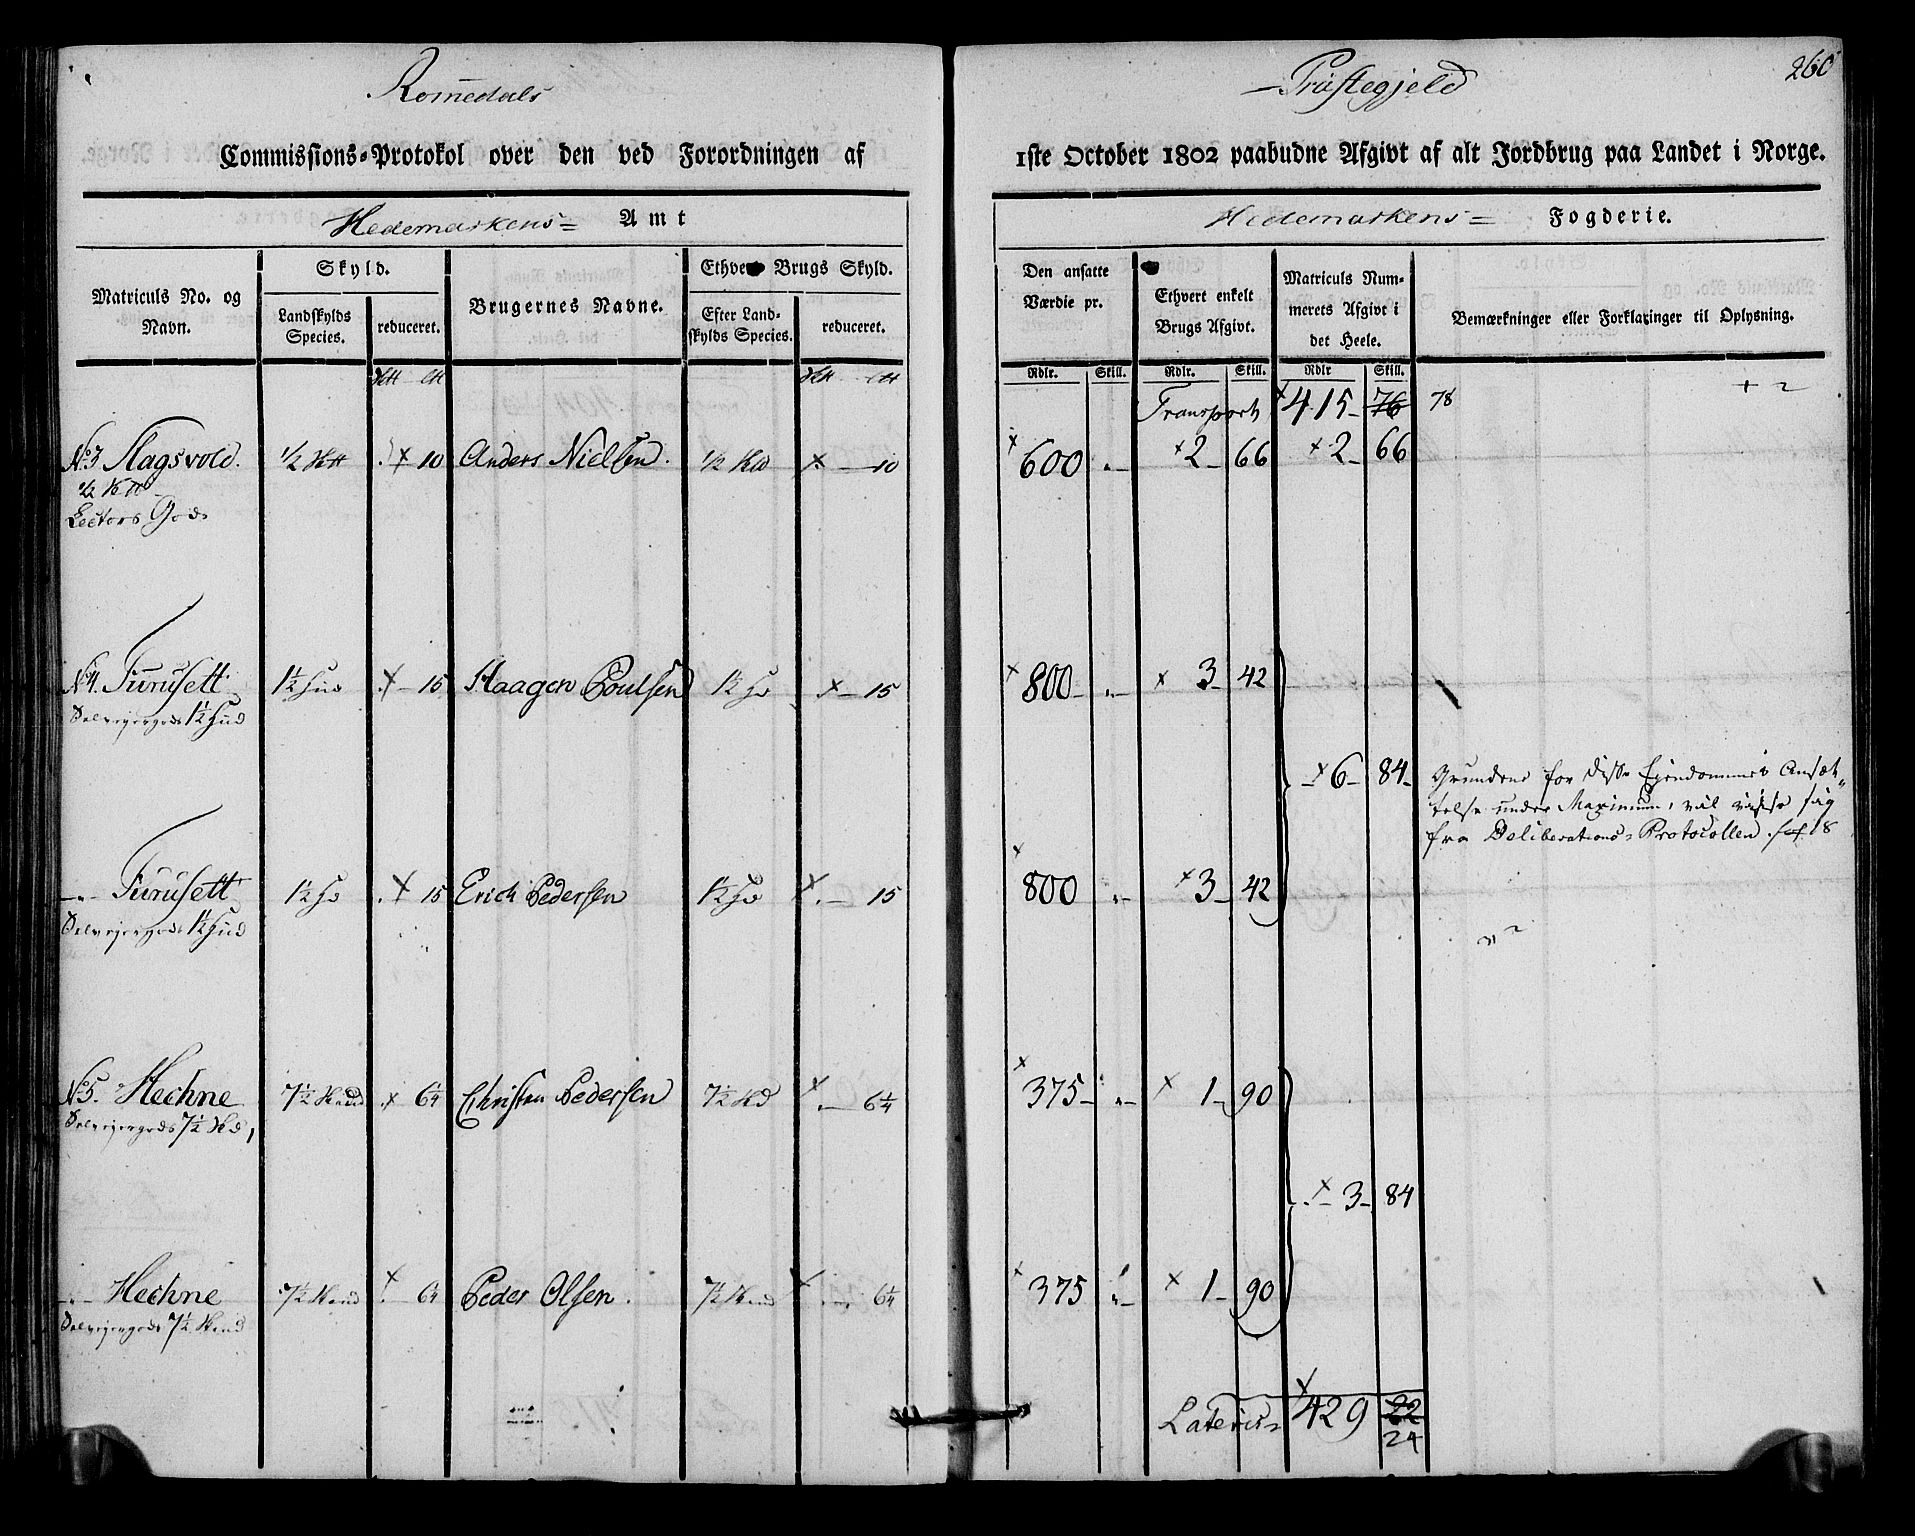 Romedals
Præstegjeld
260
Commissions=Protokol over den ved Forordningen af 1ste October 1802 paabudne Afgivt af alt Jordbrug paa Landet i Norge.
Hedemarkens= Amt
Hedemarkens= Fogderie.
Matriculs No. og Navn.
Skyld.
Landskylds Species.
reduceret.
Brugernes Navne.
Ethvert Brugs Skyld.
Efter Landskylds Species.
reduceret.
Den ansatte Værdie pr.
Ethvert enkelt Brugs Afgivt.
Matriculs Nummerets Afgivt i det Heele.
Bemærkninger eller Forklaringer til Oplysning.
Rdlr. Skill. Rdlr. Skill. Rdlr Skill.
Transport 415 76 78
No 3 Slagsvold. 1/2 10 Anders Nielsen. 1/2 10 600 2 66 2 66
1/2
Lectors Gods
No 4. Furusett 1½ Hud 15 Haagen Poulsen 1½ 15 800 3 42
Selveyergods 1½ Hud
6 84
Grundene for disse Eiendommes Ansæt-
telse under Maximum, vil
fra Deliberations-Protocollen fol. 18
Furusett 1½ 15 Erich Pedersen 1½ 15 800 3 42
Selveyergods 1½ Hud
No 5. Hechne 7½ 6¼ Christen Pedersen 7½ 6¼ 375 1 90
Selveyergods 7½
3 84
Hechne 7½ 6¼ Peder Olsen. 7½ 6¼ 375 1 90
Selveyergods 7½
Lateris 429 22
24